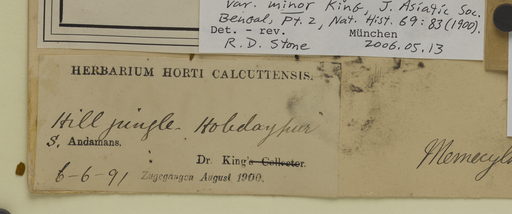 var. minor King, J. Asiatic Soc.
Bengal, Pt. 2, Nat. Hist. 69: 83 (1900).
Det. - rev. München
R. D. Stone 2006.05.13
HERBARIUM HORTI CALCUTTENSIS.
Hill jungle. Hobdaypur
S. Andamans.
Dr. King's Collector.
6-6-91 Zugegangen August 1900.
Memecyl